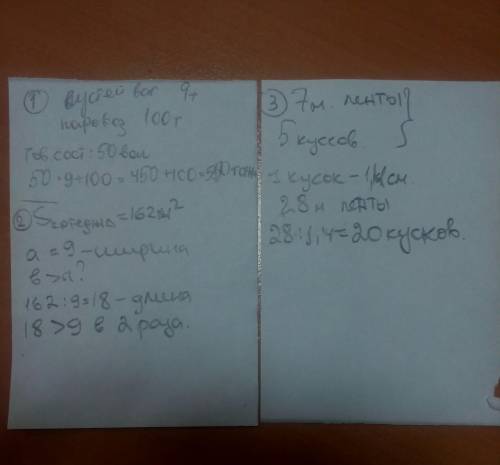 ① пустой ваг 9т
паровоз 100т
тов сост: 50 ваг
50·9+100=450+100=550 тонн
② Sкотеджа=162м²
a=9-ширина
в>а?
162:9=18-длина
18>9 в 2 раза.
③ 7м. ленты}
5 кусков.
1 кусок-1,4 см.
28м ленты
28:1,4=20 кусков.